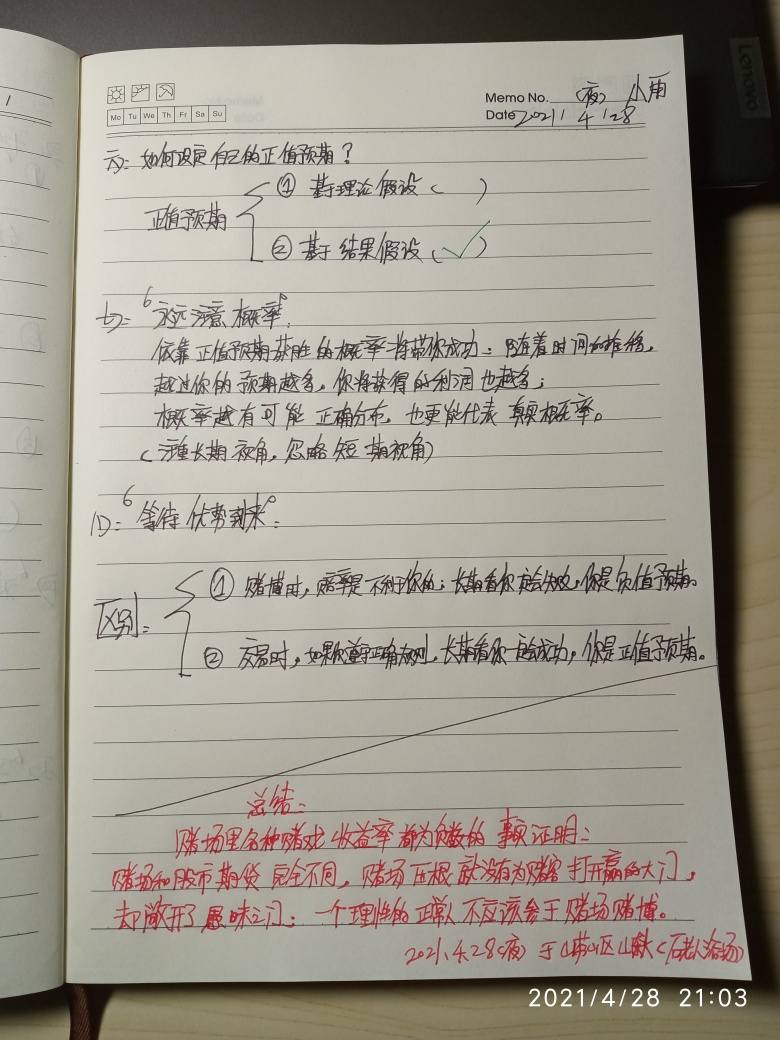 Memo No. (夜) 小雨
Mo Tu We Th Fr Sa Su
Date 2021 / 4 / 28
六: 如何设定自己的正值预期?
正值预期
① 基于理论假设 ( )
② 基于结果假设 (✓)
七: “永远注意概率”:
依靠正值预期获胜的概率将带你成功: 随着时间的推移,
越过你的预期越多, 你将获得的利润也越多;
概率越有可能正确分布, 也更能代表真实概率。
(注重长期视角, 忽略短期视角)
八: “等待优势到来”:
区别:
① 赌博时, 赔率是不利于你的; 长期看你会失败, 你是负值预期。
② 交易时, 如果你遵守正确规则, 长期看你会成功, 你是正值预期。
总结:
赌场里各种赌戏收益率都为负数的事实证明:
赌场和股市期货完全不同, 赌场压根就没有为赌客打开赢的大门,
却敞开了愚昧之门; 一个理性的正常人不应该参于赌场赌博。
2021.4.28(夜) 于崂山区 (石老人浴场)
Lenovo
2021/4/28 21:03